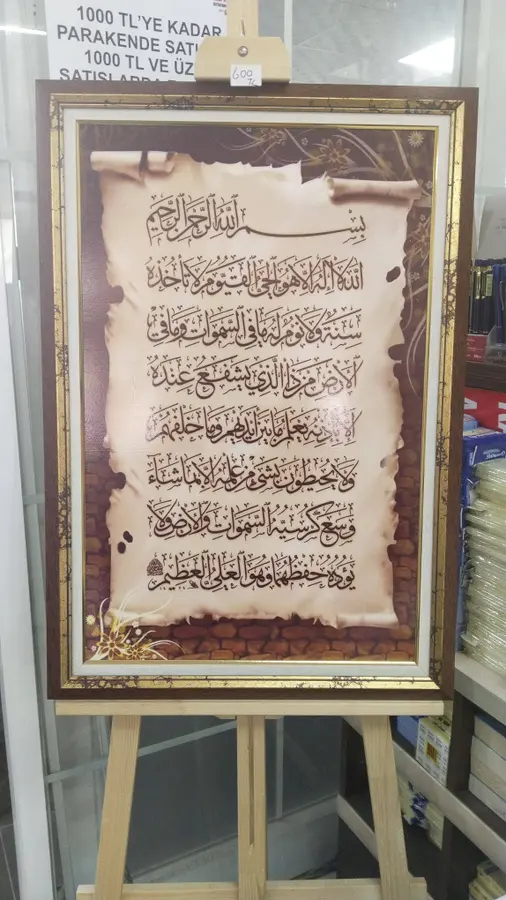 1000 TL'YE KADAR
PARAKENDE SATI
1000 TL VE ÜZ
SATIŞLARDA
600
TL
بِسْمِ اللهِ الرَّحْمٰنِ الرَّحِيمِ
اَللهُ لَا اِلٰهَ اِلَّا هُوَ الْحَيُّ الْقَيُّومُ لَا تَأْخُذُهُ
سِنَةٌ وَلَا نَوْمٌ لَهُ مَا فِي السَّمٰوَاتِ وَمَا فِي
الْاَرْضِ مَنْ ذَا الَّذِي يَشْفَعُ عِنْدَهُ
اِلَّا بِاِذْنِهِ يَعْلَمُ مَا بَيْنَ اَيْدِيهِمْ وَمَا خَلْفَهُمْ
وَلَا يُحِيطُونَ بِشَيْءٍ مِنْ عِلْمِهِ اِلَّا بِمَا شَاءَ
وَسِعَ كُرْسِيُّهُ السَّمٰوَاتِ وَالْاَرْضَ وَلَا
يَؤُدُهُ حِفْظُهُمَا وَهُوَ الْعَلِيُّ الْعَظِيمُ